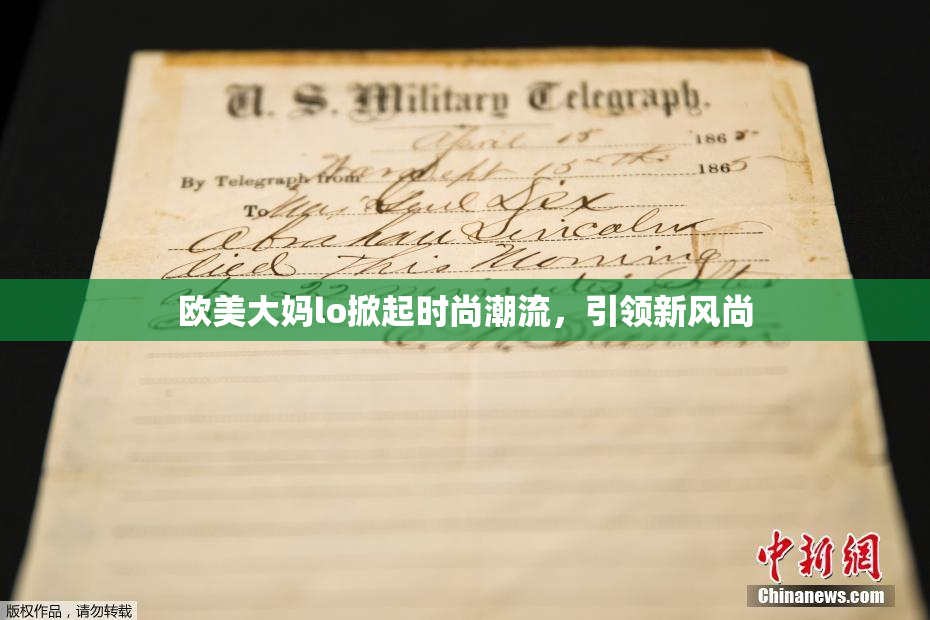 U. S. Military Telegraph.
April 15 1865
By Telegraph from War Dept 15th 1865
To Maj Genl Dix
Abraham Lincoln
died This Morning
22 minutes after
欧美大妈lo掀起时尚潮流，引领新风尚
E. M. Stanton
中新网
Chinanews.com
版权作品，请勿转载